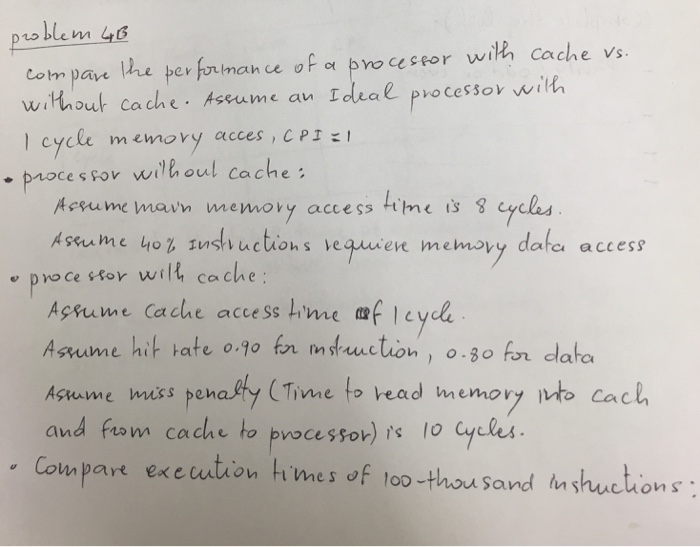 problem 4B
compare the performance of a processor with cache vs.
without cache. Assume an Ideal processor with
1 cycle memory acces, CPI = 1
• processor without cache:
Assume main memory access time is 8 cycles.
Assume 40% Instructions requiere memory data access
• processor with cache:
Assume Cache access time of 1 cycle.
Assume hit rate 0.90 for instruction, 0.80 for data
Assume miss penalty (Time to read memory into cach
and from cache to processor) is 10 Cycles.
• Compare execution times of 100-thousand Instructions: